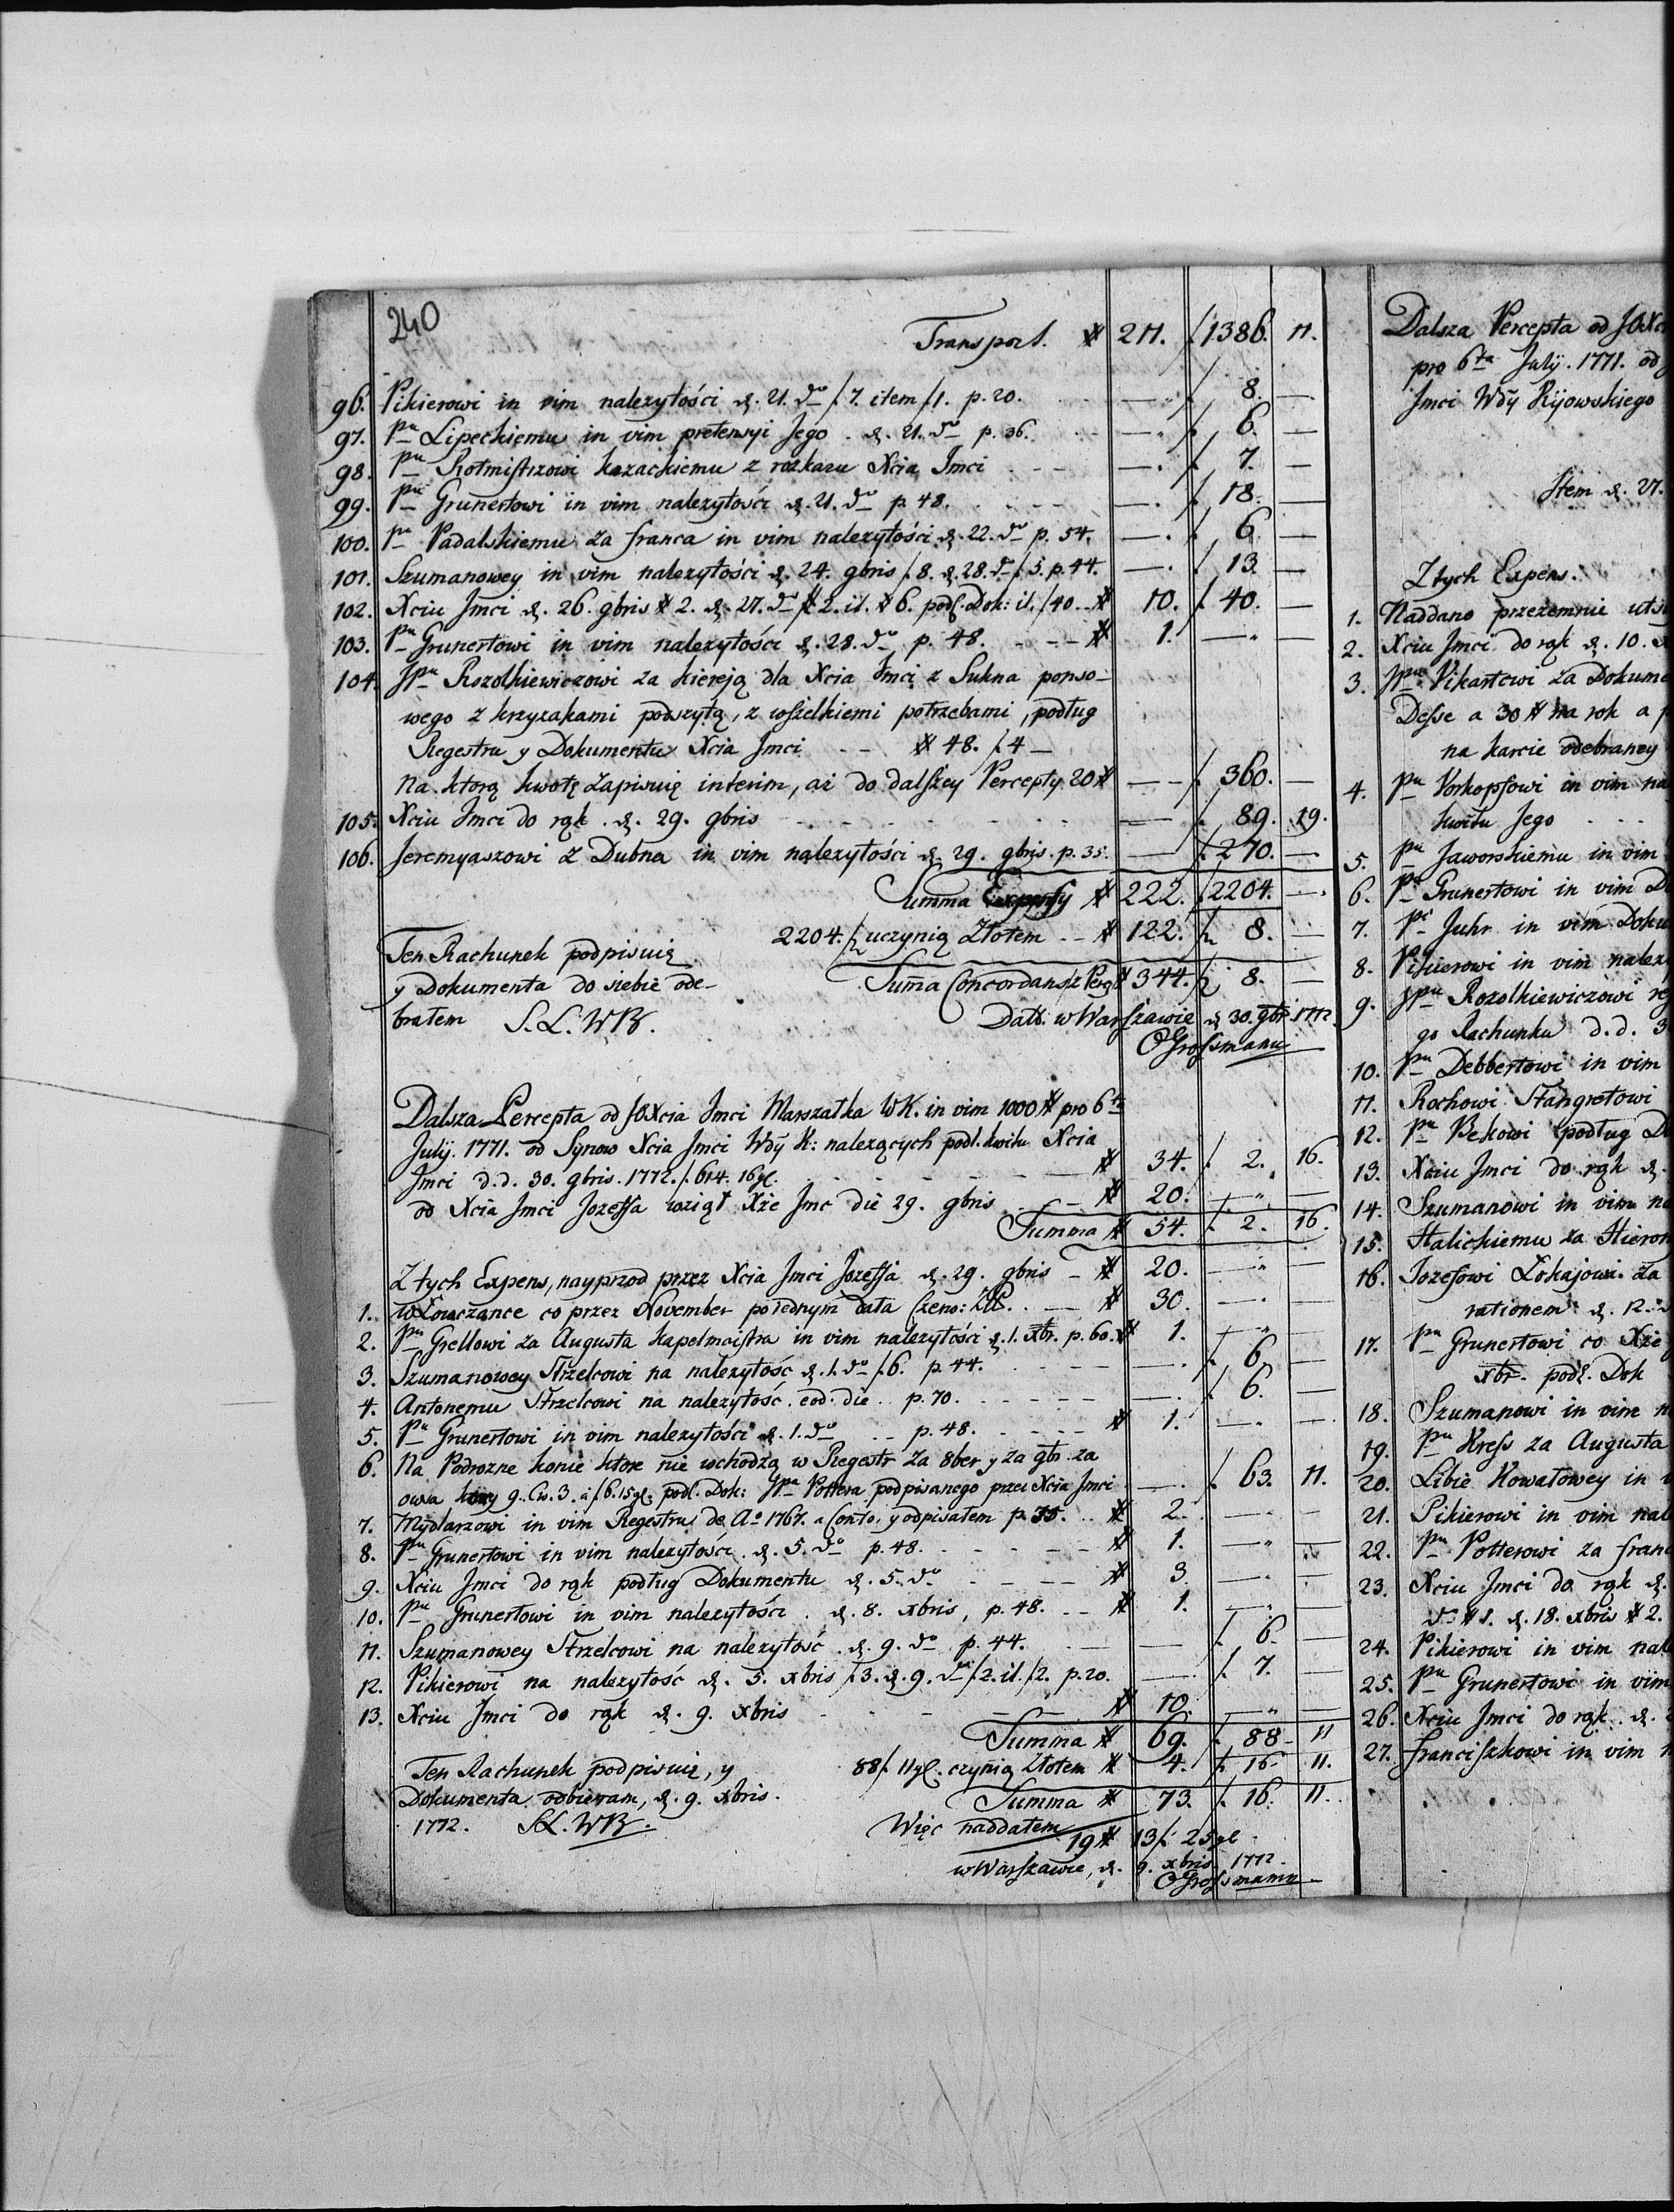 240
Transport. # 211. f. 1386. 11.
96. Pikierowi in vim nalezytości d. 21. do f. 7. item f. 1. p. 20. — f. 8. —
97. Pu Lipeckiemu in vim pretensyi Jego. d. 21. do p. 36. — f. 6. —
98. Pu Rotmistrzowi kozackiemu z rozkazu Xcia Imci — f. 7. —
99. Pu Grunertowi in vim nalezytości d. 21. do p. 48. — f. 18. —
100. Pu Padalskiemu za franca in vim nalezytości d. 22. do p. 54. — f. 6 —
101. Szumanowey in vim nalezytości d. 24. gbris f. 8. d. 28. do f. 5. p. 44. — f. 13. —
102. Xciu Imci d. 26. gbris # 2. d. 27. do # 2. it. # 6. podł. Dok: it. f. 40. # 10. f. 40. —
103. Pu Grunertowi in vim nalezytości d. 28. do p. 48. - - - # 1. — —
104. JPu Rozolkiewiczowi za kiereją dla Xcia Imci z Sukna ponso-
wego z krzyzakami podszytą, z wszelkiemi potrzebami, podług
Regestru y Dokumentu Xcia Imci - - # 48. f. 4 —
Na ktorą kwotę zapisuię interim, aż do dalszey Percepty 20 # — f. 360. —
105. Xciu Imci do rąk. d. 29. gbris — f. 89. 19.
106. Jeremyaszowi z Dubna in vim nalezytości d. 29. gbris. p. 35. — f. 270. —
Summa Expensy # 222. f. 2204. —
2204. f. uczynią Złotem - - # 122. f. 8. —
Ten Rachunek podpisuię
y Dokumenta do siebie ode-
brałem S. L. WR.
Summa Concordans z Perc # 344. f. 8. —
Datt. w Warszawie d 30. gbr. 1772
O Grossmann
Dalsza Percepta od JOXcia Imci Marszałka WK. in vim 1000 # pro 6ta
July. 1771. od Synow Xcia Imci Wdy K: nalezących podł. kwitu Xcia
Imci d. d. 30. gbris. 1772. f. 614. 16 gl. — # 34. f. 2. 16.
od Xcia Imci Jozeffa wziął Xże Imc die 29. gbris - # 20. — —
Summa # 54. f. 2. 16.
Z tych Expens, nayprzod przez Xcia Imci Jozeffa d. 29. gbris - # 20. — —
1. w Łowczance co przez November po iednym dała # 30. — —
2. Pu Grellowi za Augusta kapelmaistra in vim nalezytości d. 1. xbr. p. 60. # 1. — —
3. Szumanowey Strzelcowi na nalezytość d. 1. do f. 6. p. 44. — f. 6. —
4. Antonemu Strzelcowi na nalezytość. eod. die. p. 70. — f. 6. —
5. Pu Grunertowi in vim nalezytości d. 1. do - - p. 48. # 1. — —
6. Na Podrozne konie ktore nie wchodzą w Regestr za 8ber y za gbr. za
owsa korcy 9. Cw. 3. a f. 6. 15 gl. podł. Dok: JPa Pottera podpisanego przez Xcia Imci — f. 63. 11.
7. Mydlarzowi in vim Regestru de Ao 1767. a Conto. y odpisałem p. 75. # 2. — —
8. Pu Grunertowi in vim nalezytości. d. 5. do p. 48. # 1. — —
9. Xciu Imci do rąk podług Dokumentu d. 5. do # 3. — —
10. Pu Grunertowi in vim nalezytości. d. 8. xbris, p. 48. # 1. — —
11. Szumanowey Strzelcowi na nalezytość. d. 9. do p. 44. — f. 6. —
12. Pikierowi na nalezytość d. 5. xbris f. 3. d. 9. do f. 2. it. f. 2. p. 20. — f. 7. —
13. Xciu Imci do rąk d. 9. xbris # 10. — —
Summa # 69. f. 88. 11
Ten Rachunek podpisuię, y
Dokumenta odbieram, d. 9. xbris.
1772. SL. WR.
88 f. 11 gl. czynią Złotem # 4. f. 16. 11.
Summa # 73. f. 16. 11.
Więc naddałem
19 # 13 f. 25 gl
w Warszawie, d. 9. xbris 1772.
O Grossmann
Dalsza Percepta od JOXc
pro 6ta July. 1771. od
Imci Wdy Kijowskiego
Item d. 27.
Z tych Expens.
1. Naddano przezemnie
2. Xciu Imci do rąk d. 10.
3. JPu Pikartowi za Dokume
Desse a 30 # na rok a
na karcie odebraney
4. Pu Vorkopfowi in vim na
kwitu Jego
5. Pu Jaworskiemu in vim
6. Pu Grunertowi in vim Do
7. Pi Juhr in vim Doku
8. Pikierowi in vim nalez
9. JPu Rozolkiewiczowi
go Rachunku d. d. 3
10. Pu Debbertowi in vim
11. Rochowi Stangretowi
12. Pu Bekowi podług D
13. Xciu Imci do rąk d.
14. Szumanowi in vim na
15. Halickiemu za Hieron
16. Jozefowi Lokajowi za
rationem d. 12.
17. Pu Grunertowi co Xże
xbr. podł. Dok
18. Szumanowi in vim n
19. Pu Kress za Augusta
20. Libie Kowalowey in
21. Pikierowi in vim nal
22. Pu Potterowi za franc
23. Xciu Imci do rąk d.
do # 1. d. 18. xbris # 2.
24. Pikierowi in vim nal
25. Pu Grunertowi in vim
26. Xciu Imci do rąk. d. 2
27. franciszkowi in vim n